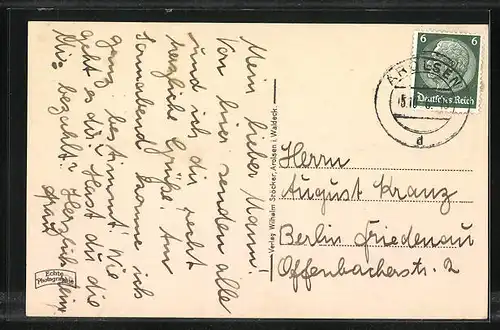 Mein lieber Mann.
Von hier senden alle
und ich dir recht
herzliche Grüße. Am
Sonnabend komme ich
ganz bestimmt. Wie
geht es dir? Hast du die
bezahlt? Herzlich
6 6
Deutsches Reich
AROLSEN
d
Herrn
August Kranz
Berlin Friedenau
Offenbacherstr. 2
Verlag Wilhelm Stöcker, Arolsen i. Waldeck.
Echte
Photographie